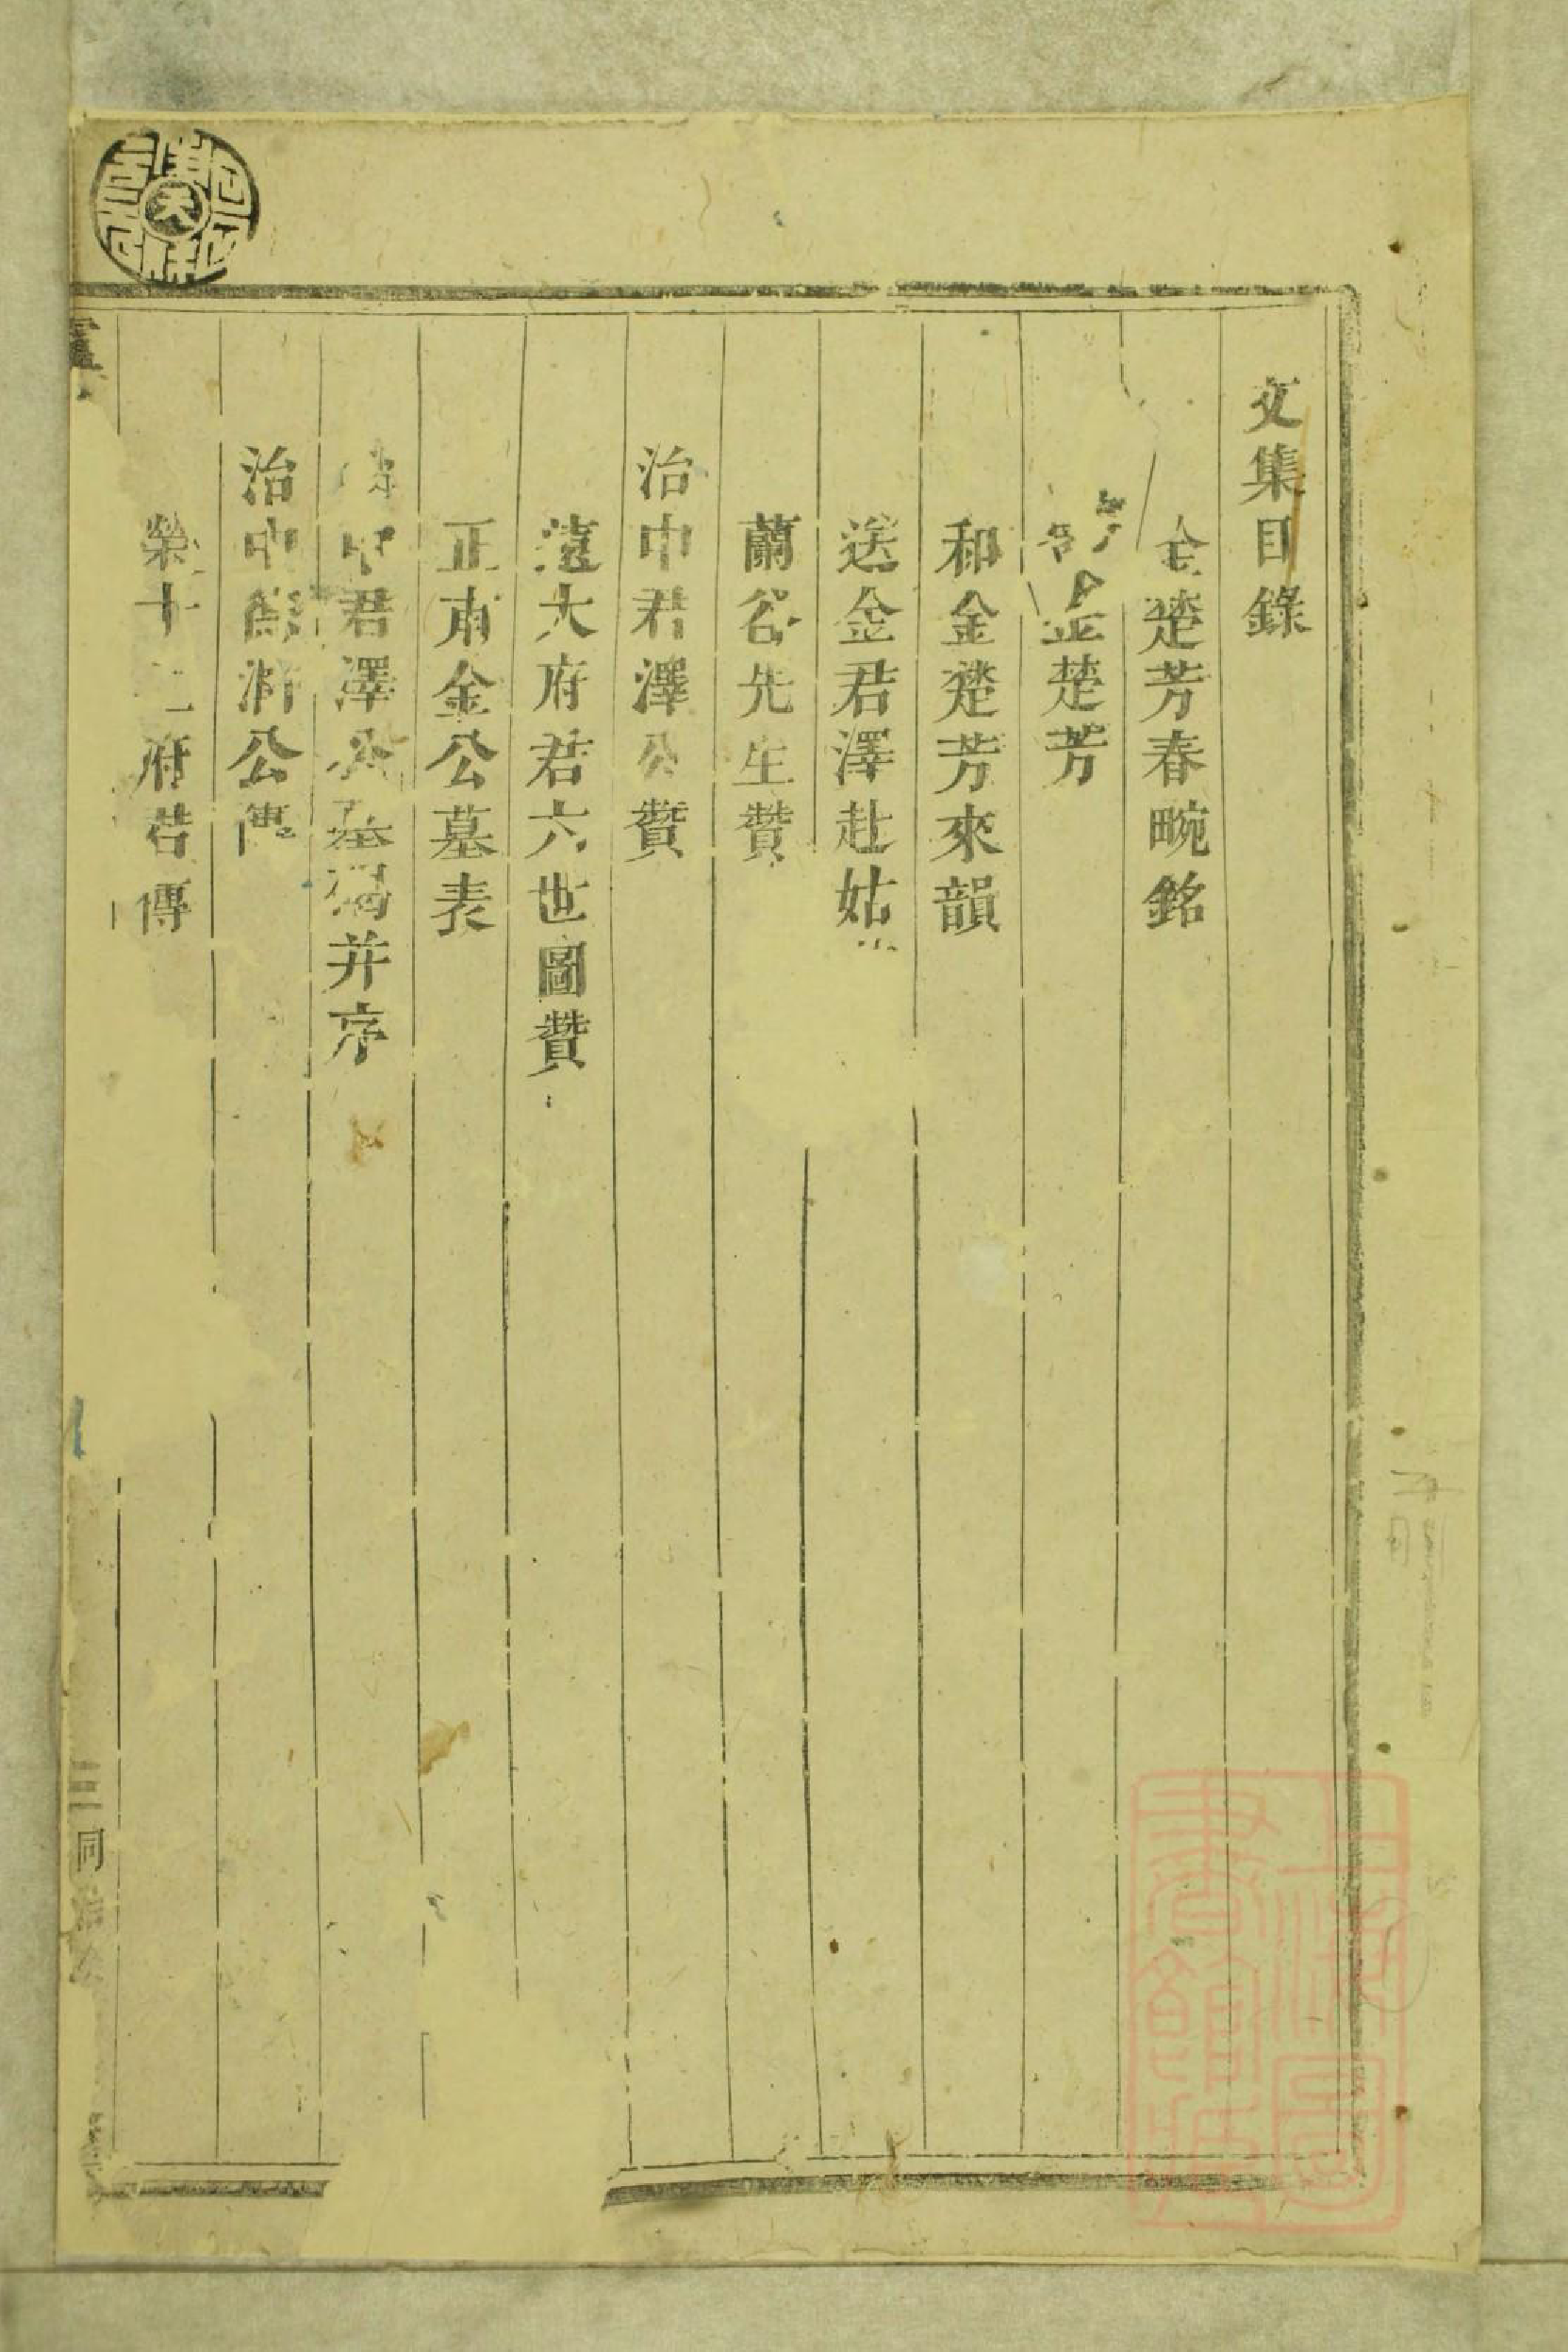 文集目錄
金楚芳春畹銘
金楚芳
和金楚芳來韻
送金君澤赴姑
蘭谷先生贊
治中君澤公贊
遠大府君六世圖贊
正甫金公墓表
中君澤公墓碣并序
治中公傳
榮十二府君傳
三 同
上海圖書館藏